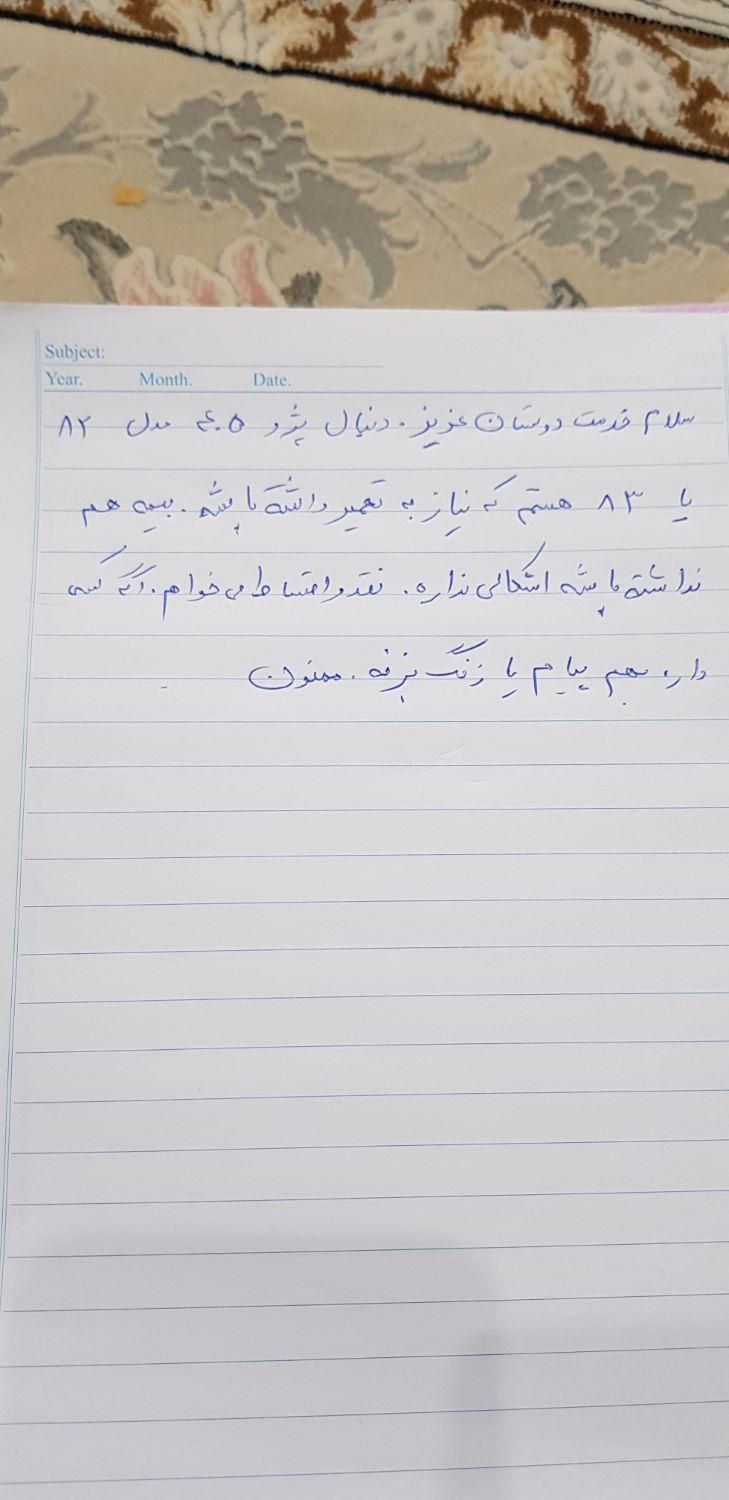 Subject:
Year. Month. Date.
سلام خدمت دوستان عزیز. دنبال پژو ۴۰۵ مدل ۸۲
یا ۸۳ هستم که نیاز به تعمیر داشته باشه. بیمه هم
نداشته باشه اشکالی نداره. نقد و اقساط می خوام. اگه کسی
داره بهم پیام یا زنگ بزنه. ممنون